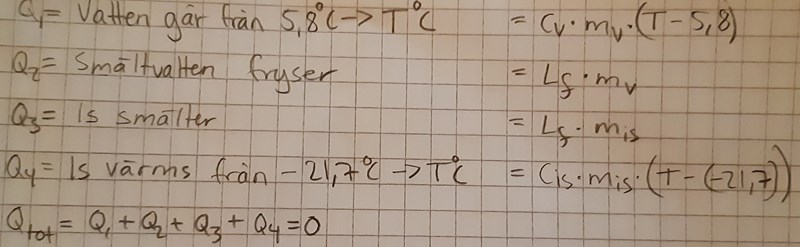 Q₁= Vatten går från 5,8°C → T°C = Cv·mv·(T-5,8)
Q₂= Smältvatten fryser = Lf·mv
Q₃= Is smälter = Lf·mis
Q₄= Is värms från -21,7°C → T°C = Cis·mis·(T-(-21,7))
Qtot= Q₁+Q₂+Q₃+Q₄=0